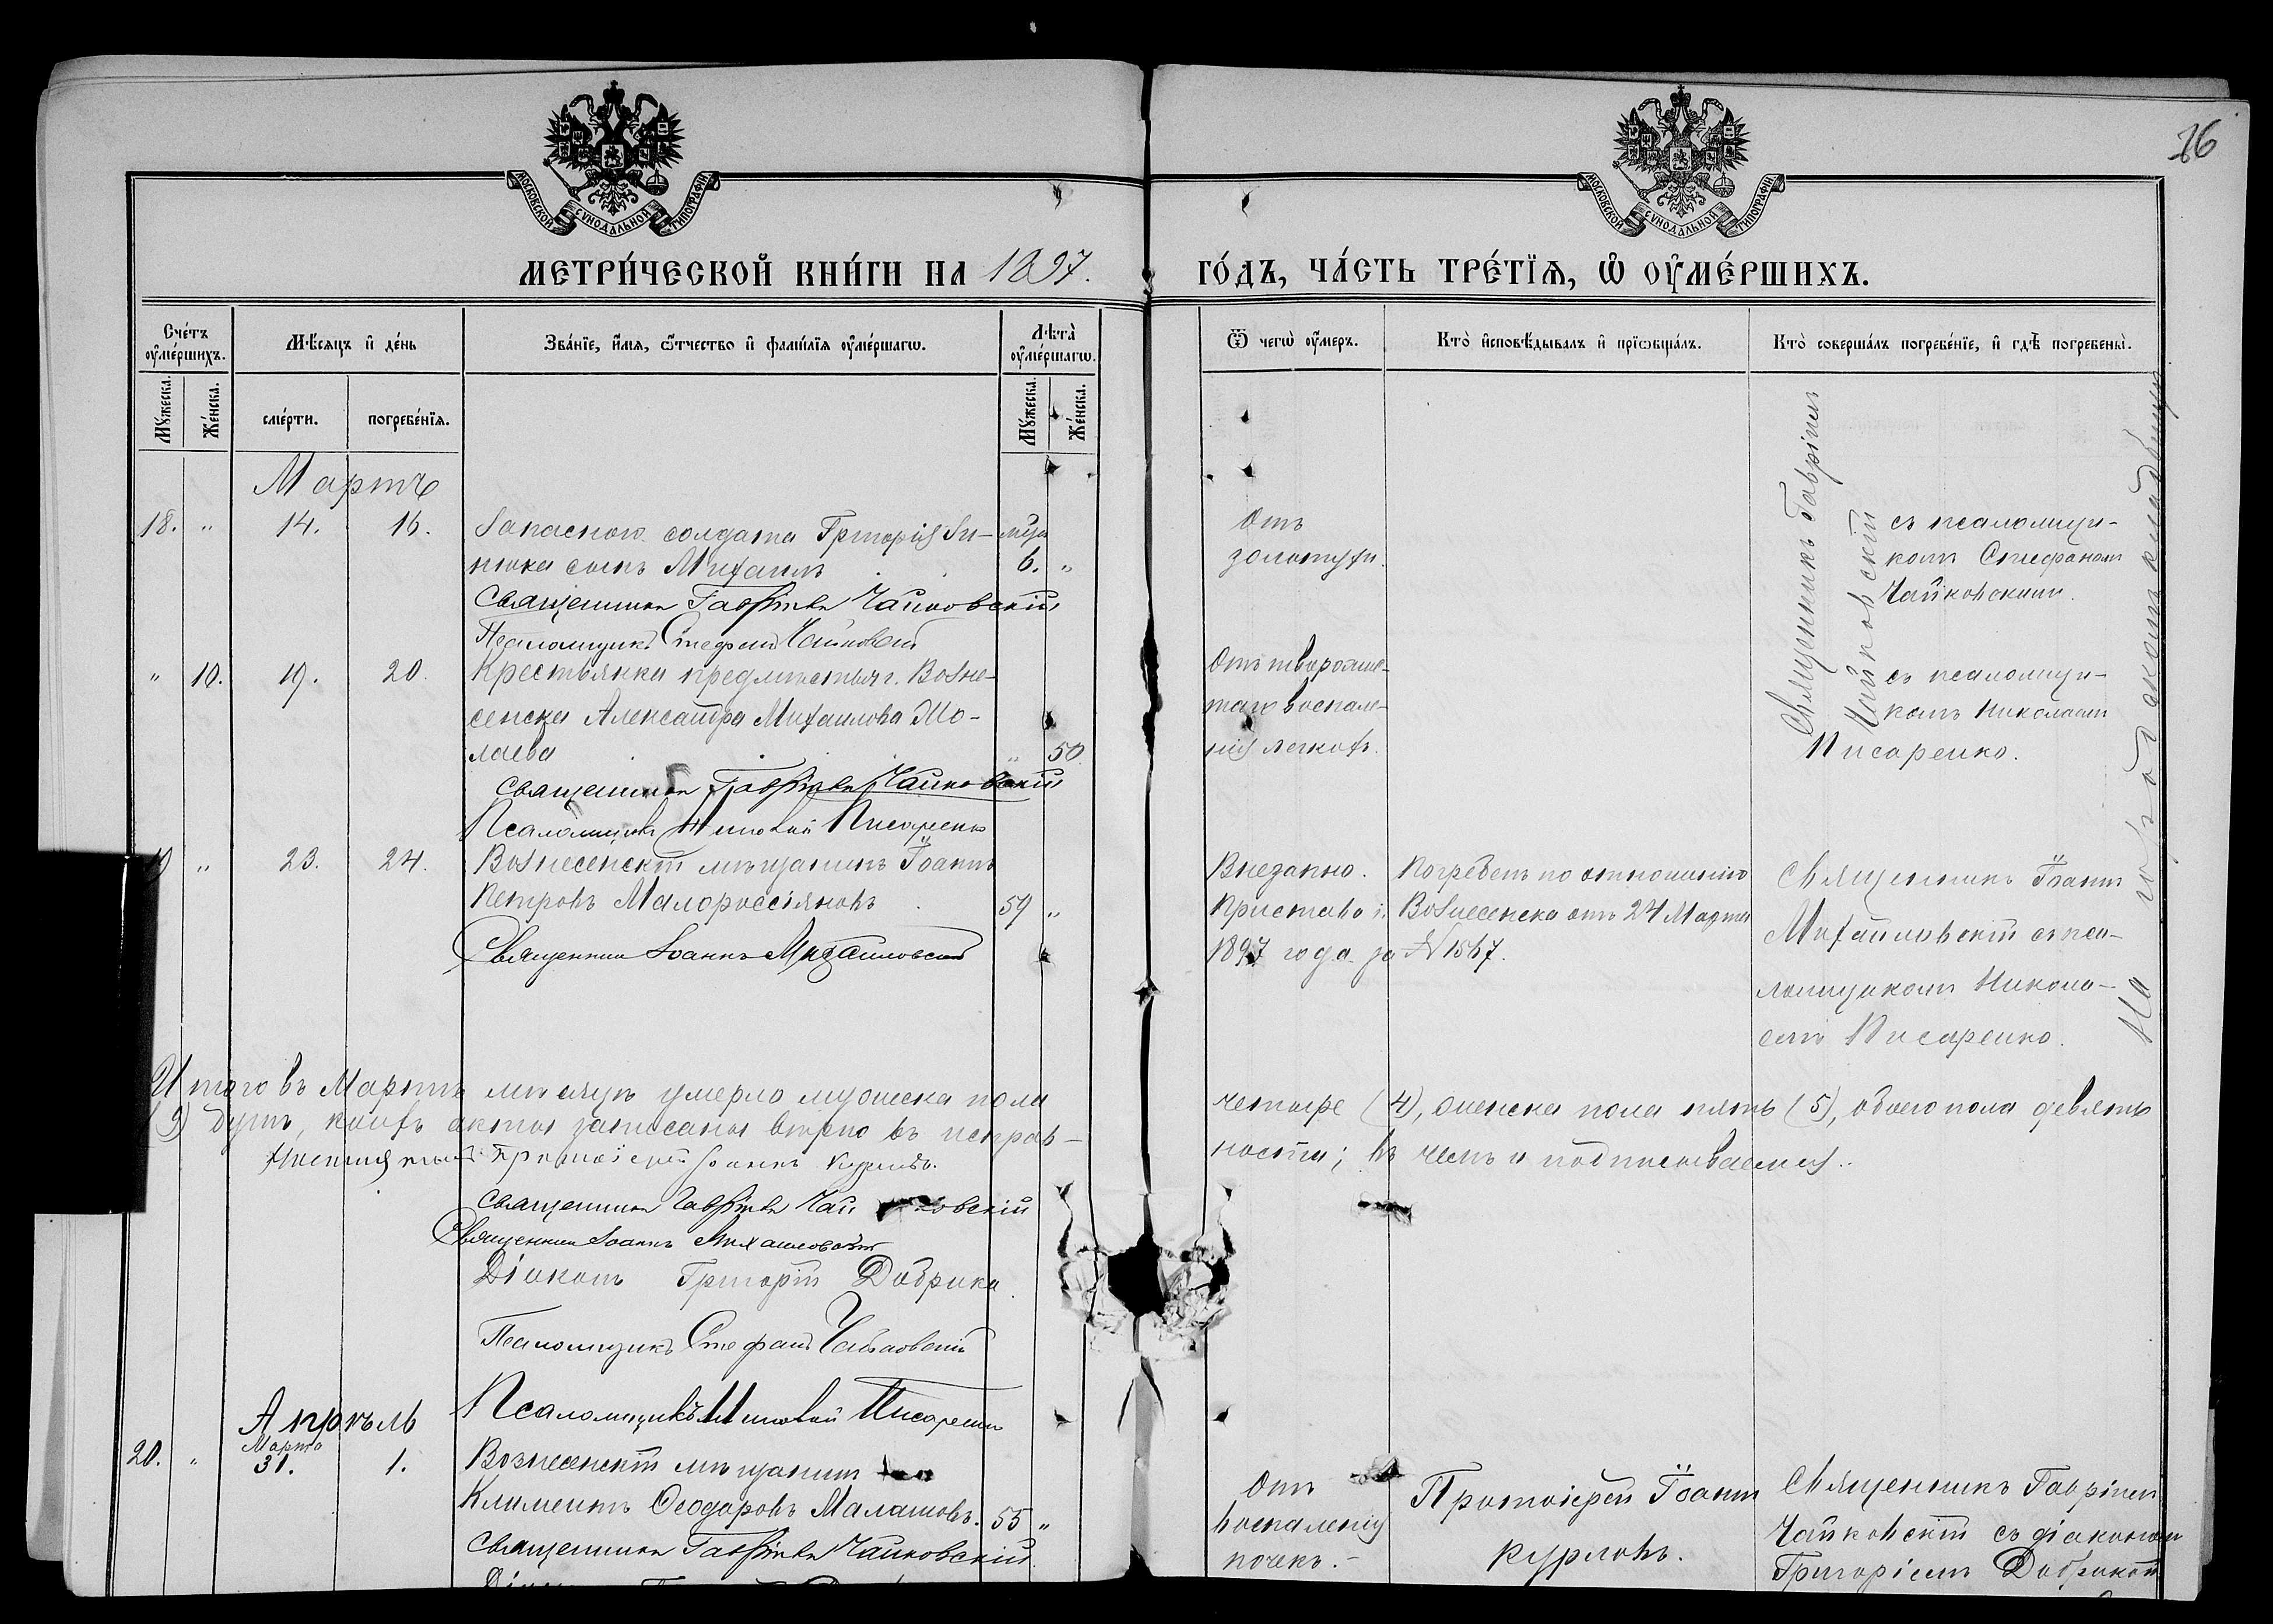 76
МОСКОВСКОЙ СУНОДАЛЬНОЙ ТИПОГРАФІИ
МОСКОВСКОЙ СУНОДАЛЬНОЙ ТИПОГРАФІИ
МЕТРИ́ЧЕСКОЙ КНИ́ГИ НА 1897. ГО́ДЪ, ЧА́СТЬ ТРЕ́ТІѦ, Ѡ҆ ОУ҆МЕ́РШИХЪ.
Сче́тъ оу҆ме́ршихъ.
Мѣ́сяцъ и҆ де́нь
Зва́нїе, и҆́мѧ, ѻ҆́тчество и҆ фами́лїѧ оу҆ме́ршагѡ.
Лѣ́та оу҆ме́ршагѡ.
Ѿ чегѡ̀ оу҆́меръ.
Кто̀ и҆сповѣ́дывалъ и҆ прїѡбща́лъ.
Кто̀ соверша́лъ погребе́нїе, и҆ гдѣ̀ погребены̀.
Мꙋ́жеска.
Же́нска.
сме́рти.
погребе́нїѧ.
Мꙋ́жеска.
Же́нска.
Мартъ
18. " 14. 16. Запасного солдата Григорія
сынъ Михаилъ 6. "
Священникъ Гавріилъ Чайковскій
Псаломщикъ Стефанъ Чайковскій
Отъ
золотухи.
Священникъ Гавріилъ
Чайковскій
съ псаломщи-
комъ Стефаномъ
Чайковскимъ.
" 10. 19. 20. Крестьянка предмѣстья г. Возне-
сенска Александра Михаилова Мо-
лаева " 50
Священникъ Гавріилъ Чайковскій
Псаломщикъ Николай Писаренко
Отъ творожис-
таго воспале-
нія легкихъ.
съ псаломщи-
комъ Николаемъ
Писаренко.
19 " 23. 24. Вознесенскій мѣщанинъ Іоаннъ
Петровъ Малороссіяновъ 59 "
Священникъ Іоаннъ Михайловскій
Внезапно. Погребенъ по отношенію
Пристава г. Вознесенска отъ 24 Марта
1897 года за №1567.
Священникъ Іоаннъ
Михайловскій съ пса-
ломщикомъ Никола-
емъ Писаренко.
На городскомъ кладбищѣ
Итого въ Мартѣ мѣсяцѣ умерло мужеска пола четыре (4), женска пола пять (5), обоего пола девять
(9) душъ, коихъ акты записаны вѣрно въ исправ-ности; въ чемъ и подписываемся:
Настоятель Протоіерей Іоаннъ Курловъ.
Священникъ Гавріилъ Чайковскій
Священникъ Іоаннъ Михайловскій
Діаконъ Григорій Добрика.
Псаломщикъ Стефанъ Чайковскій
Псаломщикъ Николай Писаренко
Апрѣль
20. " Марта 31. 1. Вознесенскій мѣщанинъ
Климентъ Ѳеодоровъ Малашовъ. 55 "
Священникъ Гавріилъ Чайковскій
Отъ
воспаленія
почекъ.-
Протоіерей Іоаннъ
Курловъ.
Священникъ Гавріилъ
Чайковскій съ діакономъ
Григоріемъ Добрикой